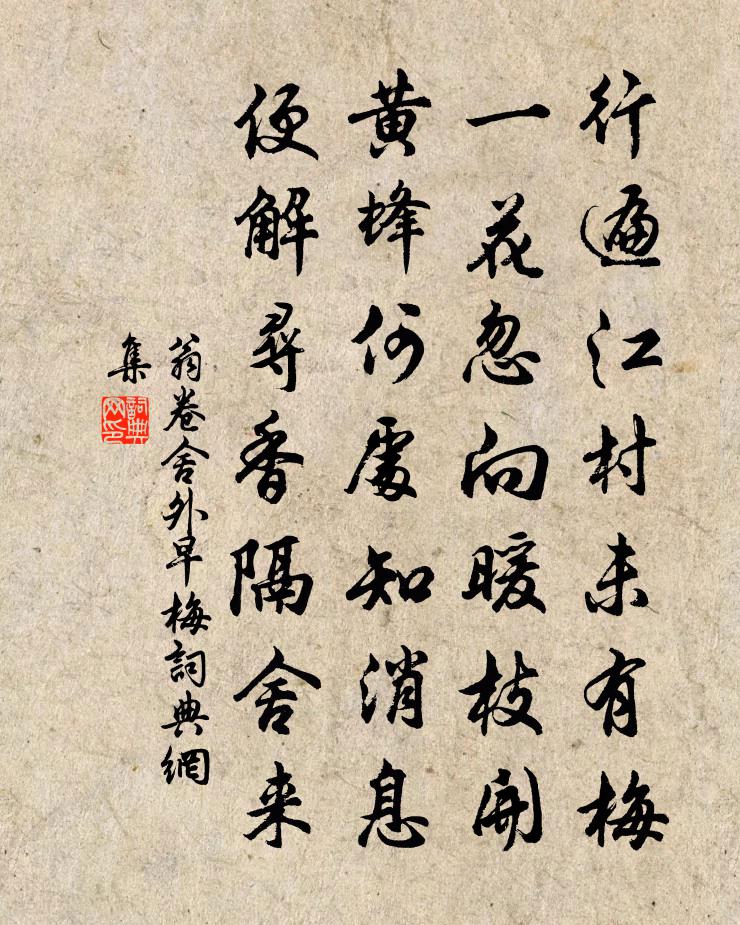 行遍江村未有梅
一花忽向暖枝開
黄蜂何處知消息
便解尋香隔舍来
翁卷舍外早梅詞典網
集
詞典
网印